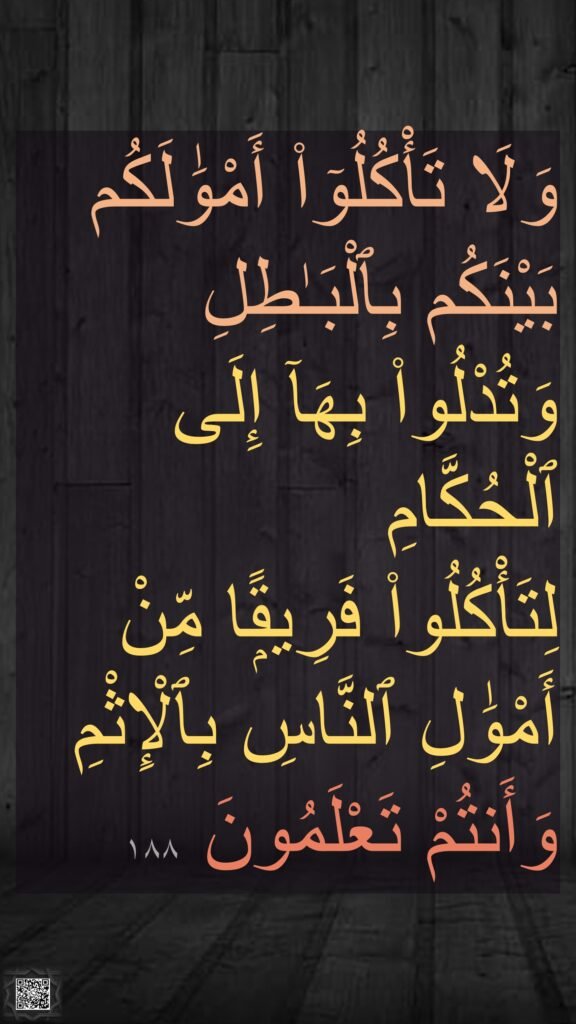 وَلَا تَأْكُلُوٓا۟ أَمْوَٰلَكُم
بَيْنَكُم بِٱلْبَـٰطِلِ
وَتُدْلُوا۟ بِهَآ إِلَى
ٱلْحُكَّامِ
لِتَأْكُلُوا۟ فَرِيقًۭا مِّنْ
أَمْوَٰلِ ٱلنَّاسِ بِٱلْإِثْمِ
وَأَنتُمْ تَعْلَمُونَ ١٨٨